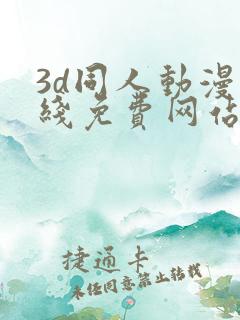 3d同人動漫
綫免費网占
捷通卡
未任同意禁止转载